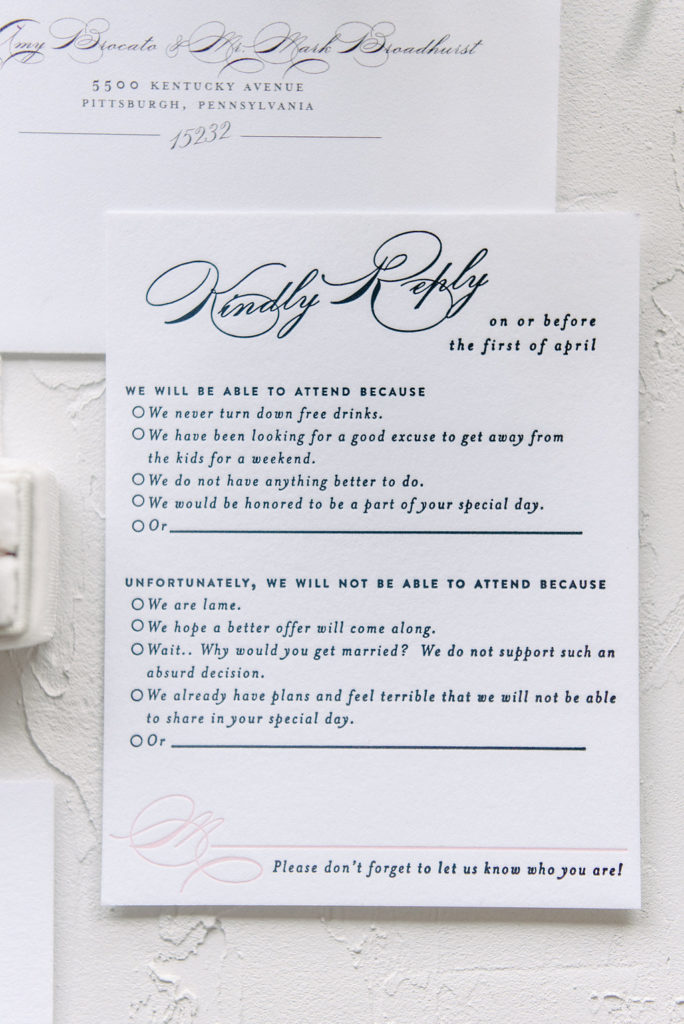 Amy Brocato & Mr. Mark Broadhurst
5500 KENTUCKY AVENUE
PITTSBURGH, PENNSYLVANIA
15232
Kindly Reply
on or before
the first of april
WE WILL BE ABLE TO ATTEND BECAUSE
We never turn down free drinks.
We have been looking for a good excuse to get away from
the kids for a weekend.
We do not have anything better to do.
We would be honored to be a part of your special day.
Or
UNFORTUNATELY, WE WILL NOT BE ABLE TO ATTEND BECAUSE
We are lame.
We hope a better offer will come along.
Wait.. Why would you get married? We do not support such an
absurd decision.
We already have plans and feel terrible that we will not be able
to share in your special day.
Or
M
Please don't forget to let us know who you are!